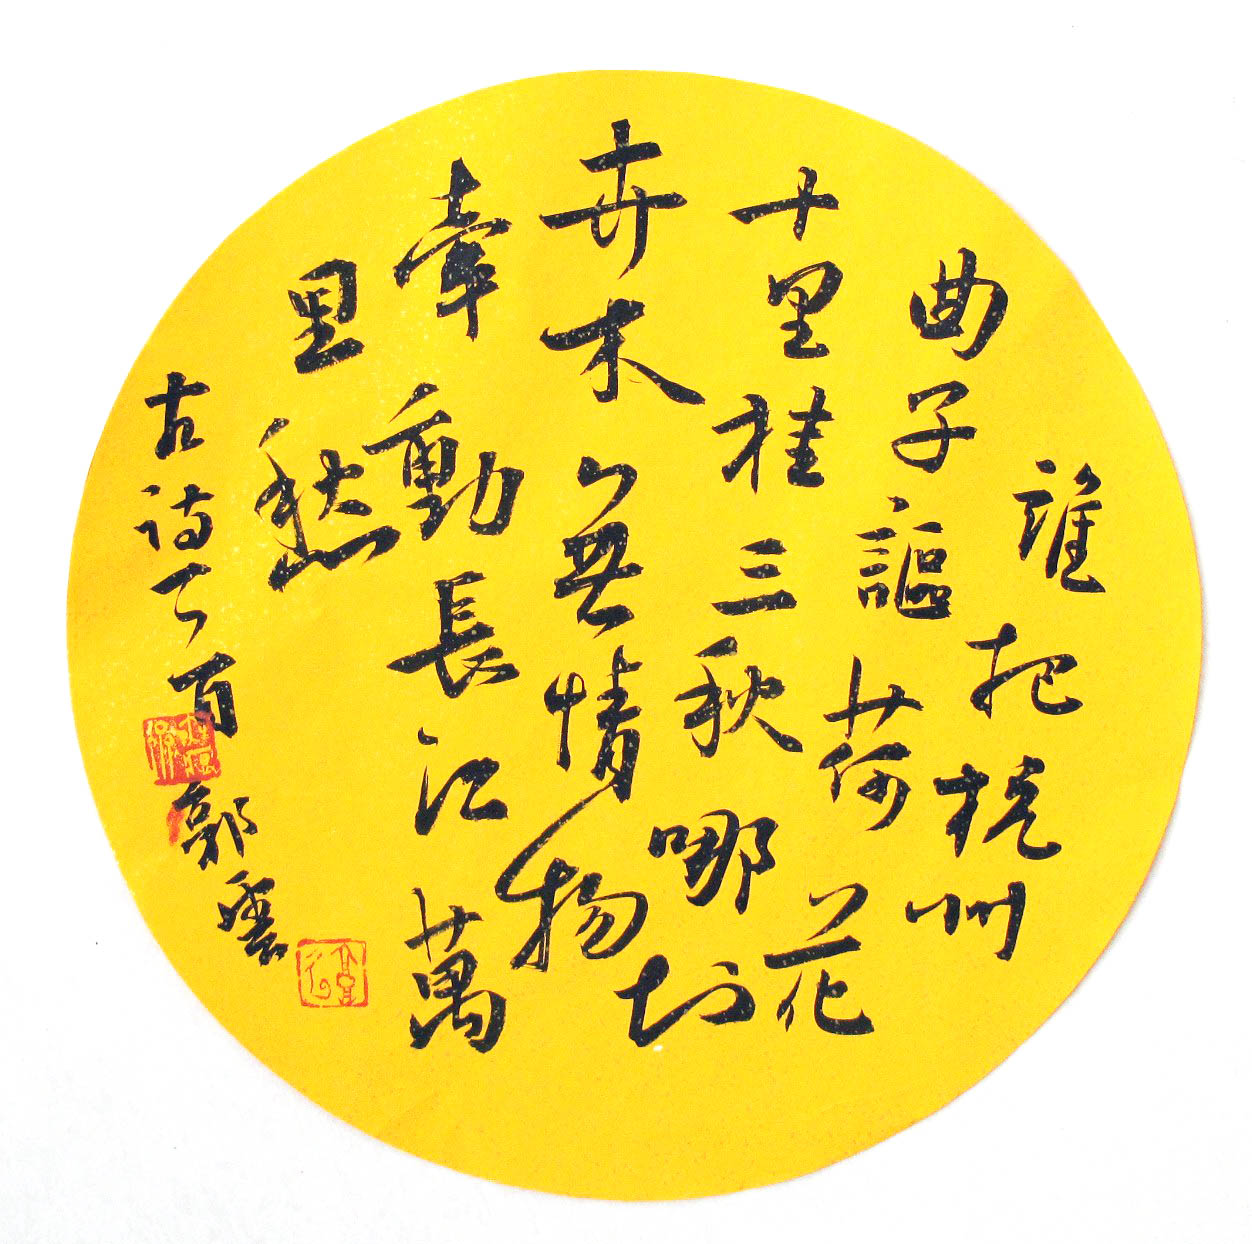 誰把杭州
曲子謳荷花
十里桂三秋哪
卉木無情物
牽動長江萬
里愁
古詩一首郭雲